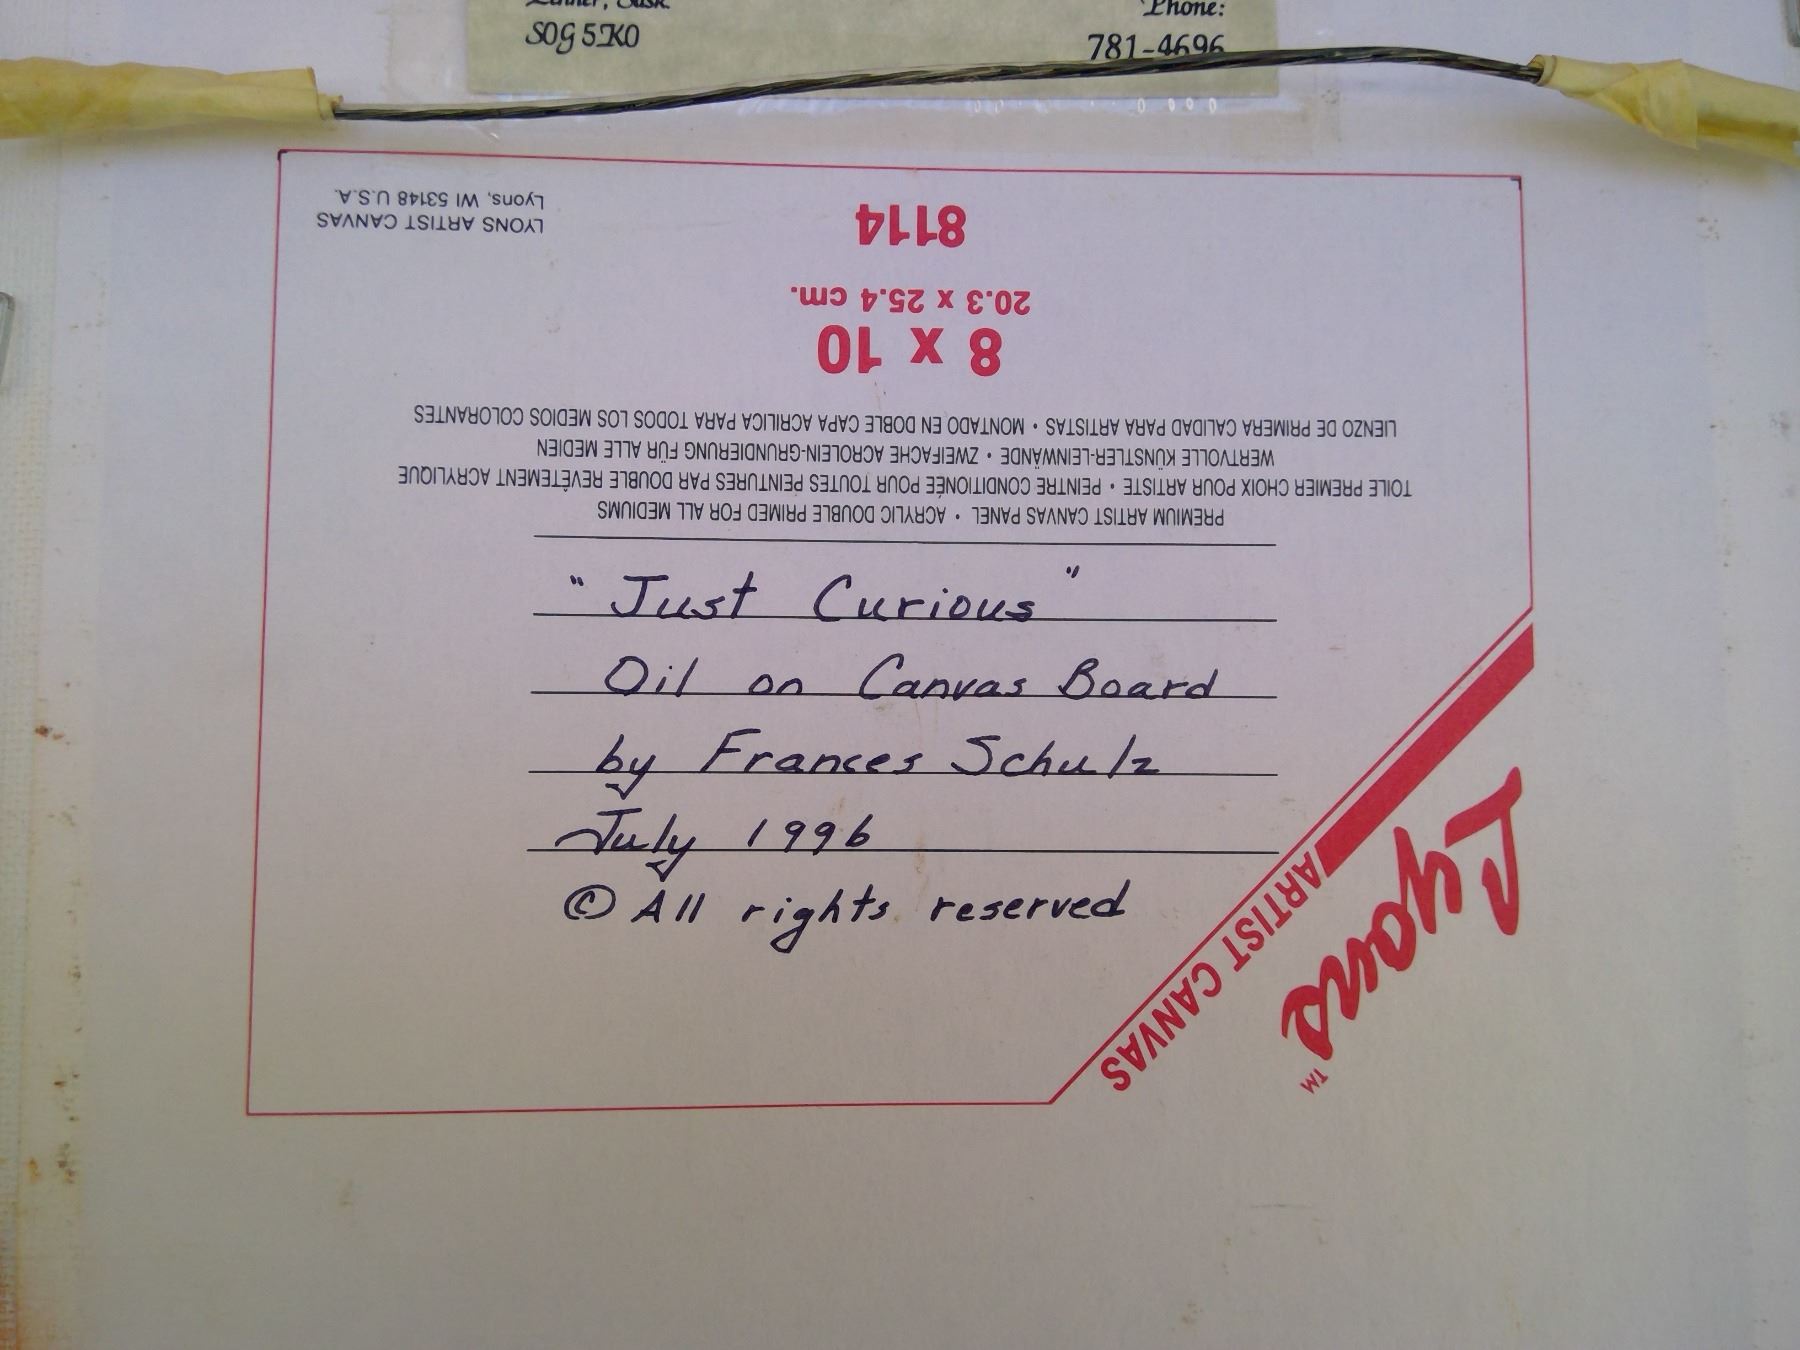 Sask.
S0G 5K0
Phone:
781-4696
LYONS ARTIST CANVAS
Lyons, WI 53148 U.S.A.
8114
20.3 x 25.4 cm.
8 x 10
LIENZO DE PRIMERA CALIDAD PARA ARTISTAS • MONTADO EN DOBLE CAPA ACRILICA PARA TODOS LOS MEDIOS COLORANTES
WERTVOLLE KÜNSTLER-LEINWÄNDE • ZWEIFACHE ACROLEIN-GRUNDIERUNG FÜR ALLE MEDIEN
TOILE PREMIER CHOIX POUR ARTISTE • PEINTRE CONDITIONÉE POUR TOUTES PEINTURES PAR DOUBLE REVÊTEMENT ACRYLIQUE
PREMIUM ARTIST CANVAS PANEL • ACRYLIC DOUBLE PRIMED FOR ALL MEDIUMS
"Just Curious"
Oil on Canvas Board
by Frances Schulz
July 1996
© All rights reserved
Lyons™
ARTIST CANVAS